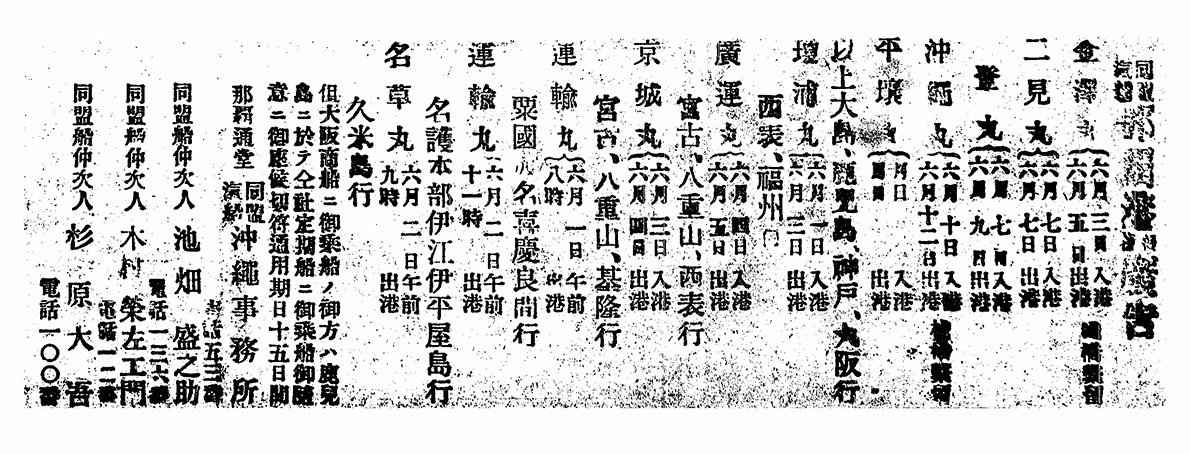 同盟汽船出港廣告
金澤丸 六月三日入港 六月五日出港
二見丸 六月七日入港 六月七日出港
丸 六月七日入港 六月九日出港
沖繩丸 六月十日入港 六月十二日出港
平壤丸 月 日入港 出港
以上大島、鹿兒島、神戸、大阪行
壇浦丸 六月一日入港 六月二日出港
西表、福州行
廣運丸 六月四日入港 六月五日出港
宮古、八重山、西表行
京城丸 六月三日入港 六月四日出港
宮古、八重山、基隆行
連輸丸 六月一日午前八時出港
粟國 名喜慶良間行
運輸丸 六月二日午前十一時出港
名護本部伊江伊平屋島行
名草丸 六月二日午前九時出港
久米島行
但大阪商船ニ御乘船ノ御方ハ鹿兒
島ニ於テ仝社定期船ニ御乘船御隨
意ニ御座候切符通用期日十五日間
那覇通堂 同盟汽船沖繩事務所
同盟船仲次人 池畑盛之助 電話五三番
同盟船仲次人 木村榮左工門 電話一三六番
電話一二番
同盟船仲次人 杉原大吾
電話一〇〇番